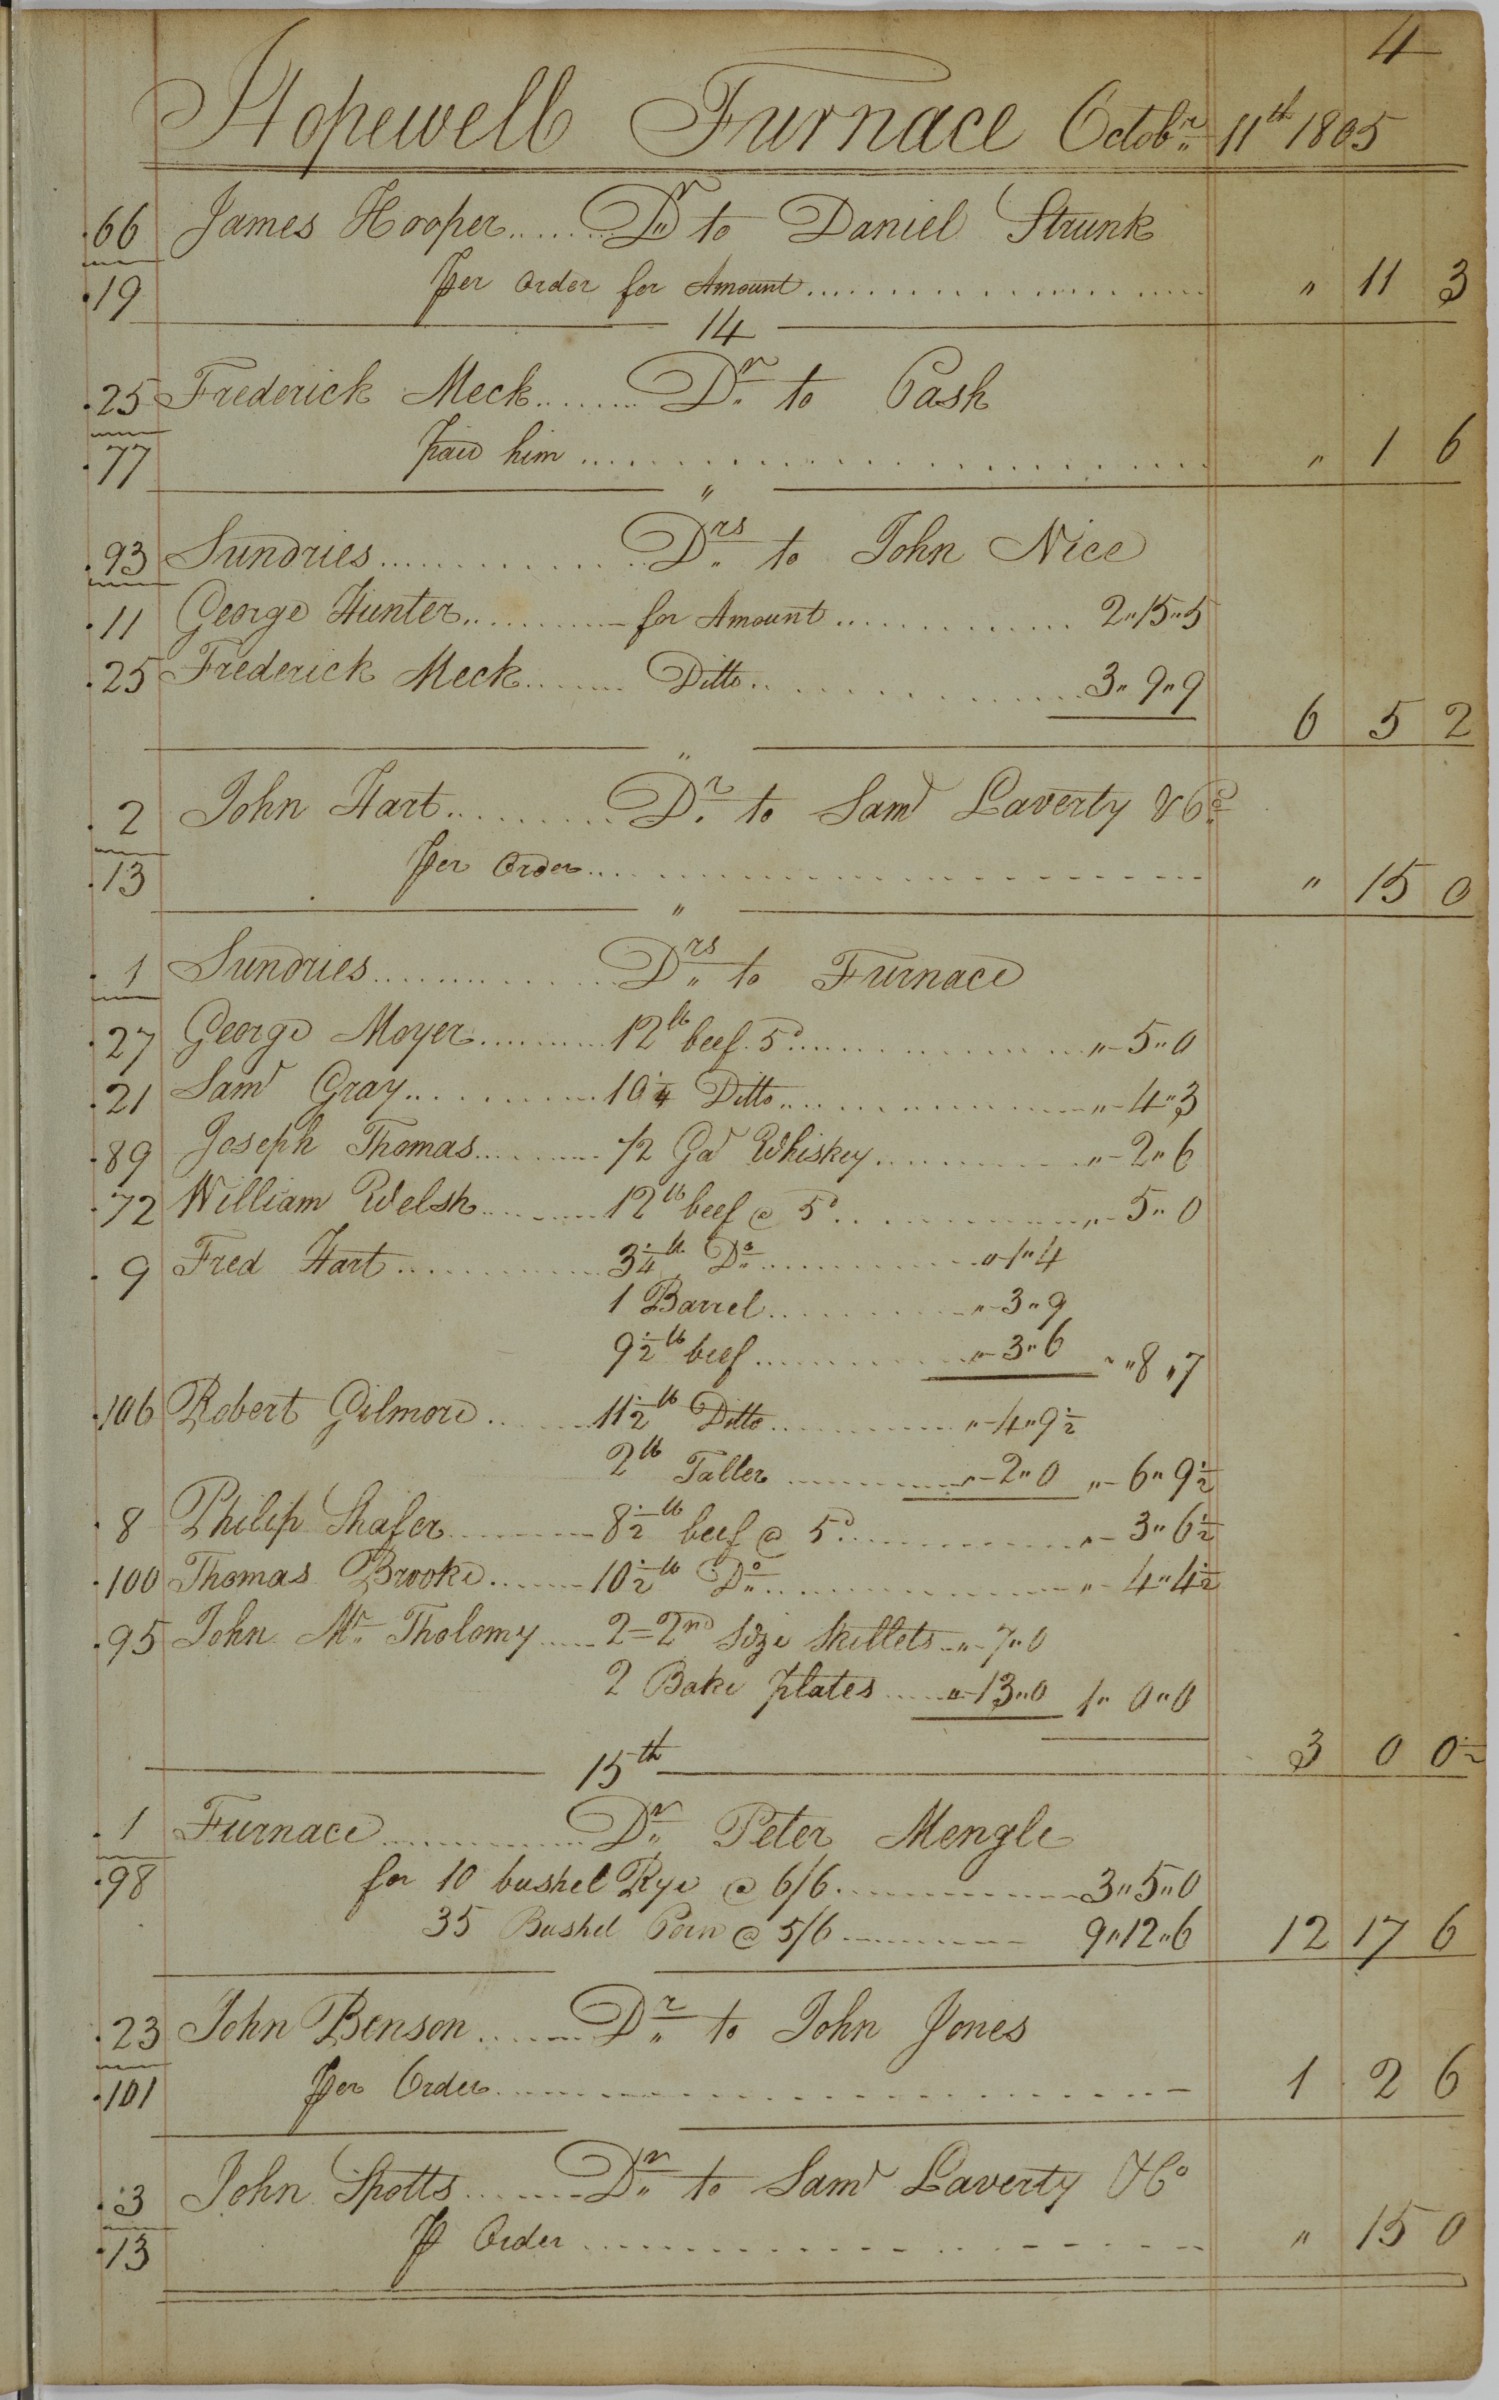 4
Hopewell Furnace Octobr 11th 1805
66 James Hooper Dr to Daniel Strunk
19 Per Order for Amount " 11 3
14
25 Frederick Meck Dr to Cash
77 paid him " 1 6
"
93 Sundries Drs to John Nice
11 George Hunter for Amount 2"15"5
25 Frederick Meck Ditto 3"9"9
6 5 2
"
2 John Hart Dr to Saml Laverty & Co
13 Per Order " 15 0
"
1 Sundries Drs to Furnace
27 George Moyer 12lb beef 5d "-5"0
21 Saml Gray 10 1/4 Ditto "-4"3
89 Joseph Thomas 1/2 Gal Whiskey "-2"6
72 William Welsh 12lb beef @ 5d "-5"0
9 Fred Hart 3 1/4 lb Do "-1"4
1 Barrel "-3"9
9 1/2 lb beef "-3"6 " "8"7
106 Robert Gilmore 11 1/2 lb Ditto "-4"9 1/2
2lb Taller "-2"0 "-6"9 1/2
8 Philip Shafer 8 1/2 lb beef @ 5d "-3"6 1/2
100 Thomas Brooke 10 1/2 lb Do "-4"4 1/2
95 John Mc Tholomy 2=2nd Size Skillets "-7"0
2 Bake plates "-13"0 1"0"0
3 0 0 1/2
15th
1 Furnace Dr Peter Mengle
98 for 10 bushel Rye @ 6/6 3"5"0
35 Bushel Corn @ 5/6 9"12"6 12 17 6
23 John Benson Dr to John Jones
101 Per Order 1 2 6
3 John Spotts Dr to Saml Laverty & Co
13 P Order " 15 0